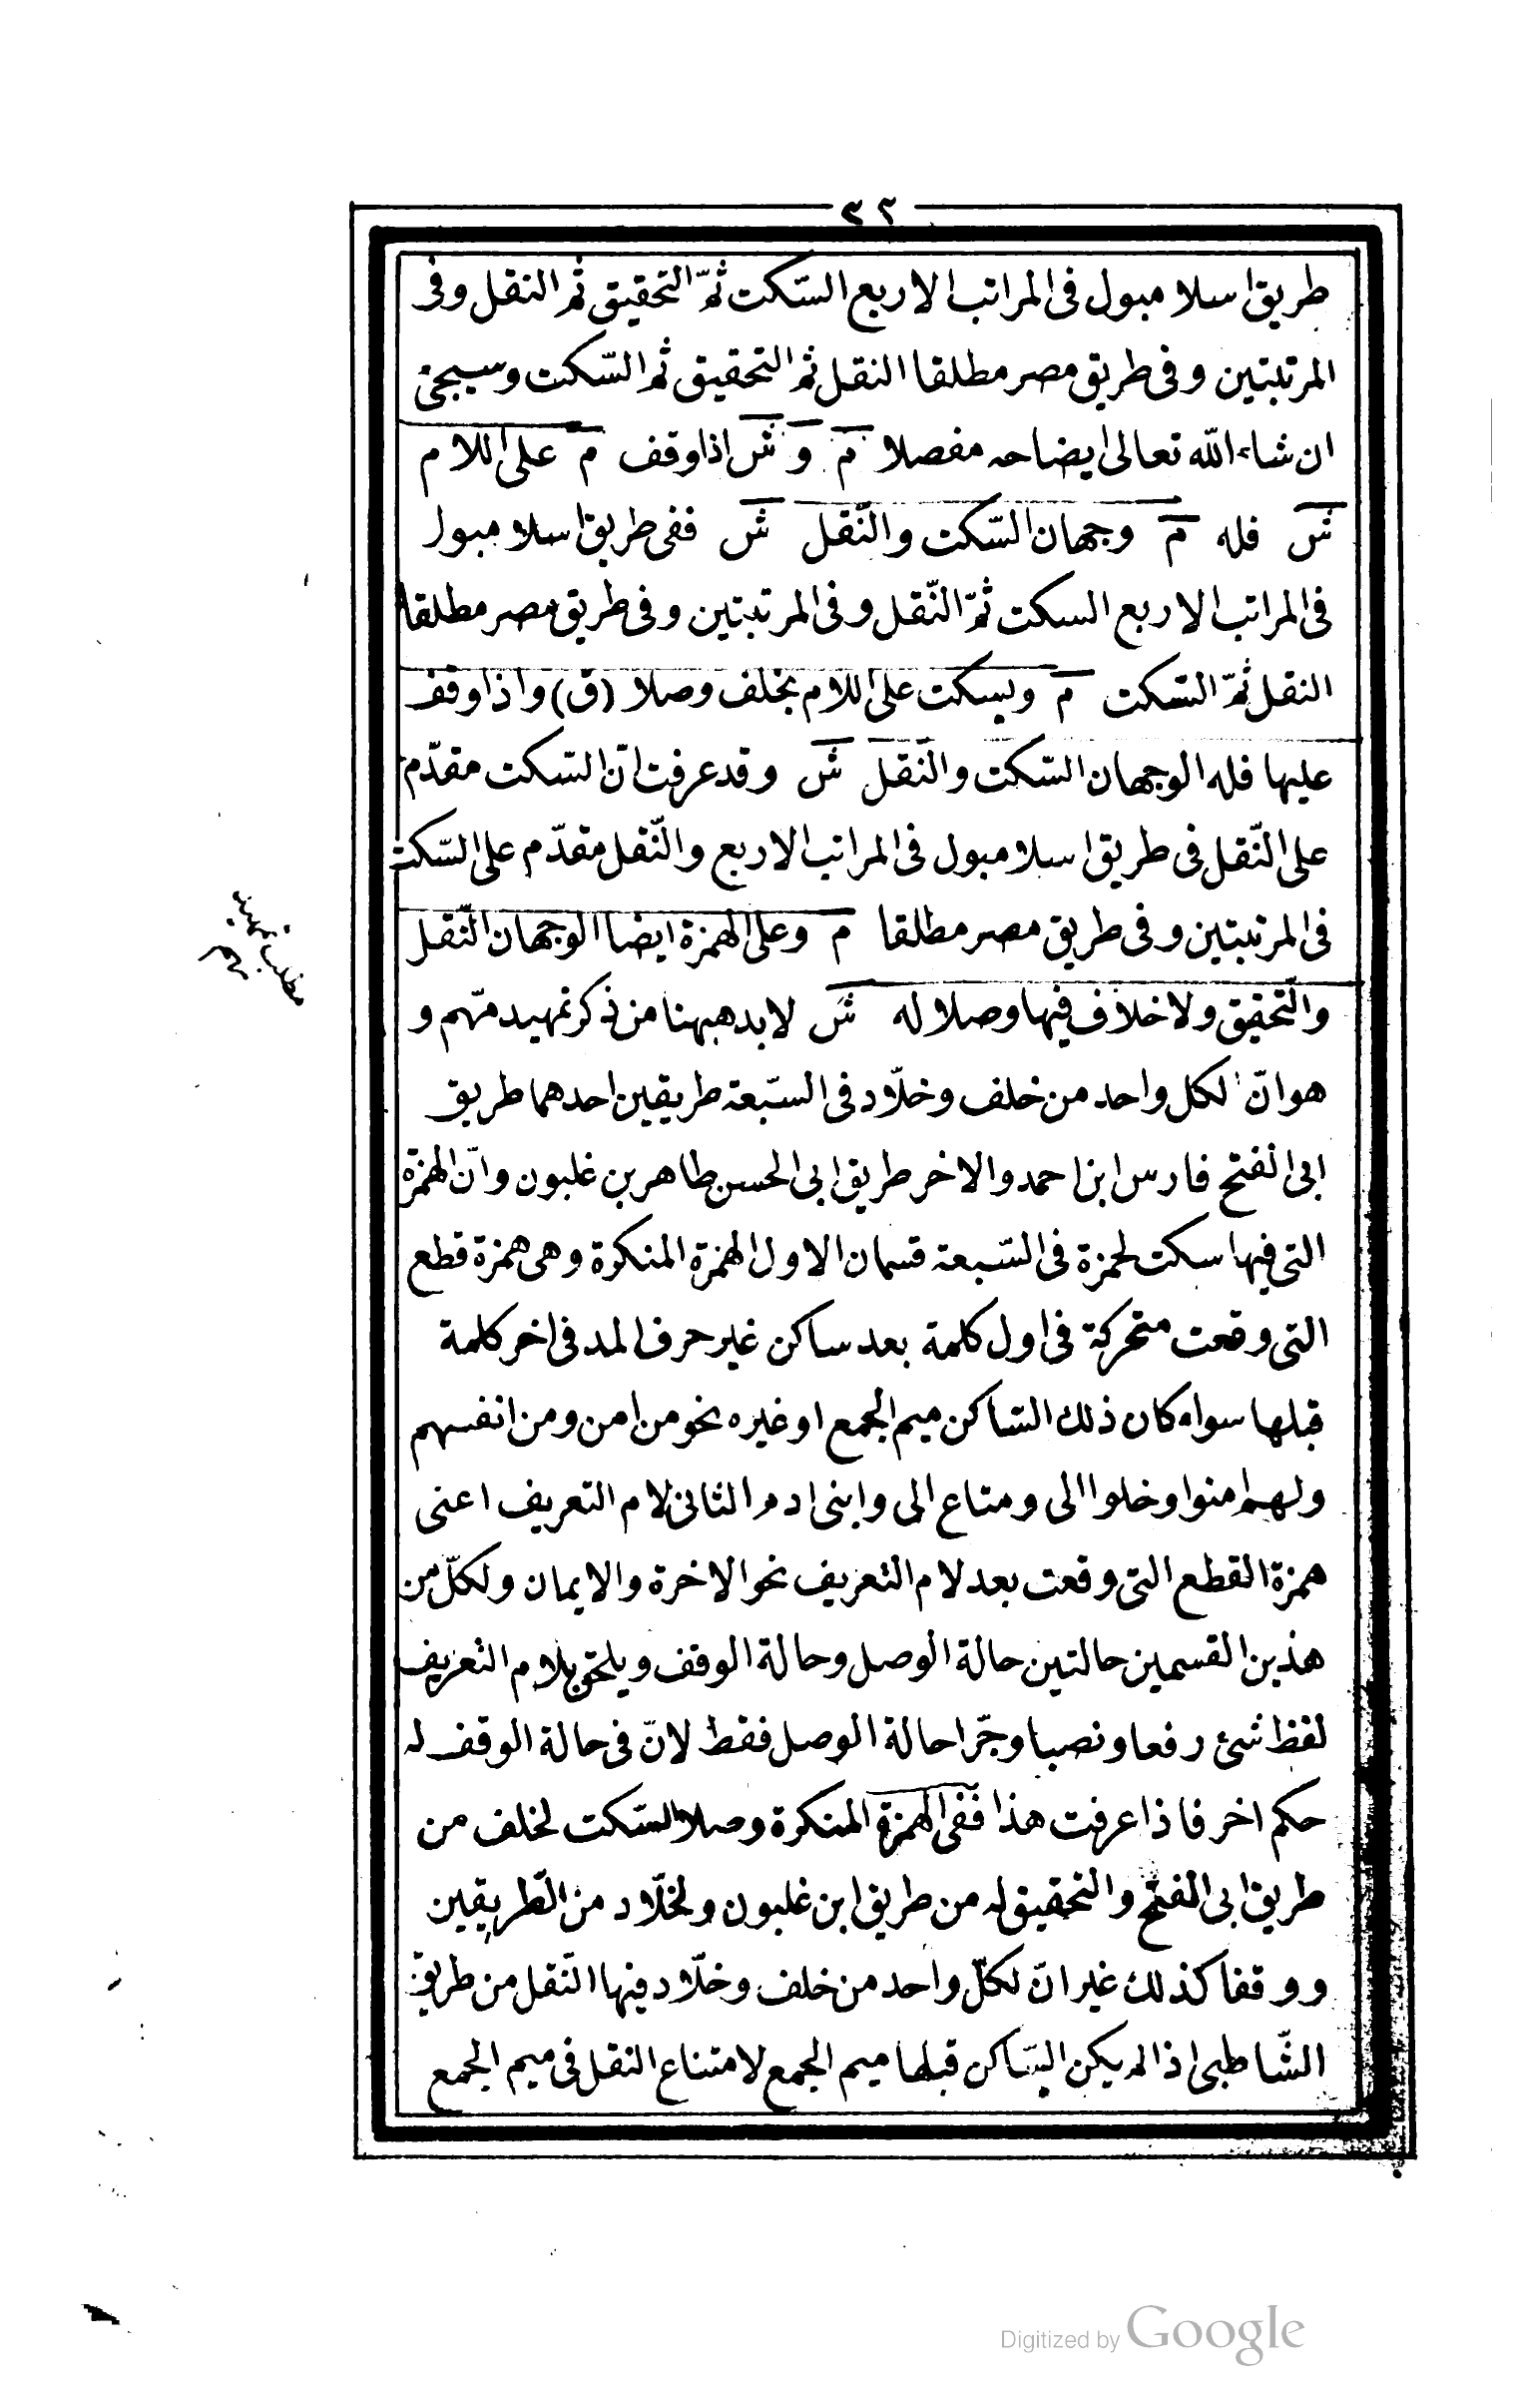 ٣٢
طريق اسلامبول فى المراتب الاربع السّكت ثمّ التحقيق ثم النقل وفى
المرتبتين وفى طريق مصر مطلقا النقل ثم التحقيق ثم السّكت وسيجئ
ان شاء الله تعالى ايضاحه مفصلا م و ش اذا وقف م على اللام
ش فله م وجهان السّكت والنّقل ش ففى طريق اسلامبول
فى المراتب الاربع السكت ثمّ النّقل وفى المرتبتين وفى طريق مصر مطلقا
النقل ثمّ السّكت م ويسكت على اللام بخلف وصلا (ق) واذا وقف
عليها فله الوجهان السّكت والنّقل ش وقد عرفت انّ السّكت مقدّم
على النّقل فى طريق اسلامبول فى المراتب الاربع والنّقل مقدّم على السّكت
فى المرتبتين وفى طريق مصر مطلقا م وعلى الهمزة ايضا الوجهان النّقل
والتّحقيق ولا خلاف فيها وصلا له ش لابد ههنا من ذكر تمهيد مهّم و
هو انّ لكل واحد من خلف وخلّاد فى السّبعة طريقين احدهما طريق
ابى الفتح فارس ابن احمد والاخر طريق ابى الحسن طاهر بن غلبون وانّ الهمزة
التى فيها سكت لحمزة فى السّبعة قسمان الاول الهمزة المنكرة وهى همزة قطع
التى وقعت متحركة فى اول كلمة بعد ساكن غير حرف المد فى اخر كلمة
قبلها سواء كان ذلك السّاكن ميم الجمع او غيره نحو من امن ومن انفسهم
ولهم امنوا وخلوا الى ومتاع الى وابنى ادم الثانى لام التعريف اعنى
همزة القطع التى وقعت بعد لام التعريف نحو الاخرة والايمان ولكلّ من
هذين القسمين حالتين حالة الوصل وحالة الوقف ويلحق بلام التعريف
لفظ شئ رفعا ونصبا وجّرا حالة الوصل فقط لانّ فى حالة الوقف له
حكم اخر فاذا عرفت هذا ففى الهمزة المنكرة وصلا السّكت لخلف من
طريق ابى الفتح والتحقيق له من طريق ابن غلبون ولخلّاد من الطّريقين
ووقفا كذلك غير انّ لكلّ واحد من خلف وخلّاد فيها النّقل من طريق
الشّاطبى اذا لم يكن السّاكن قبلها ميم الجمع لامتناع النقل فى ميم الجمع
مطلب تمهيد
مهم
Digitized by Google